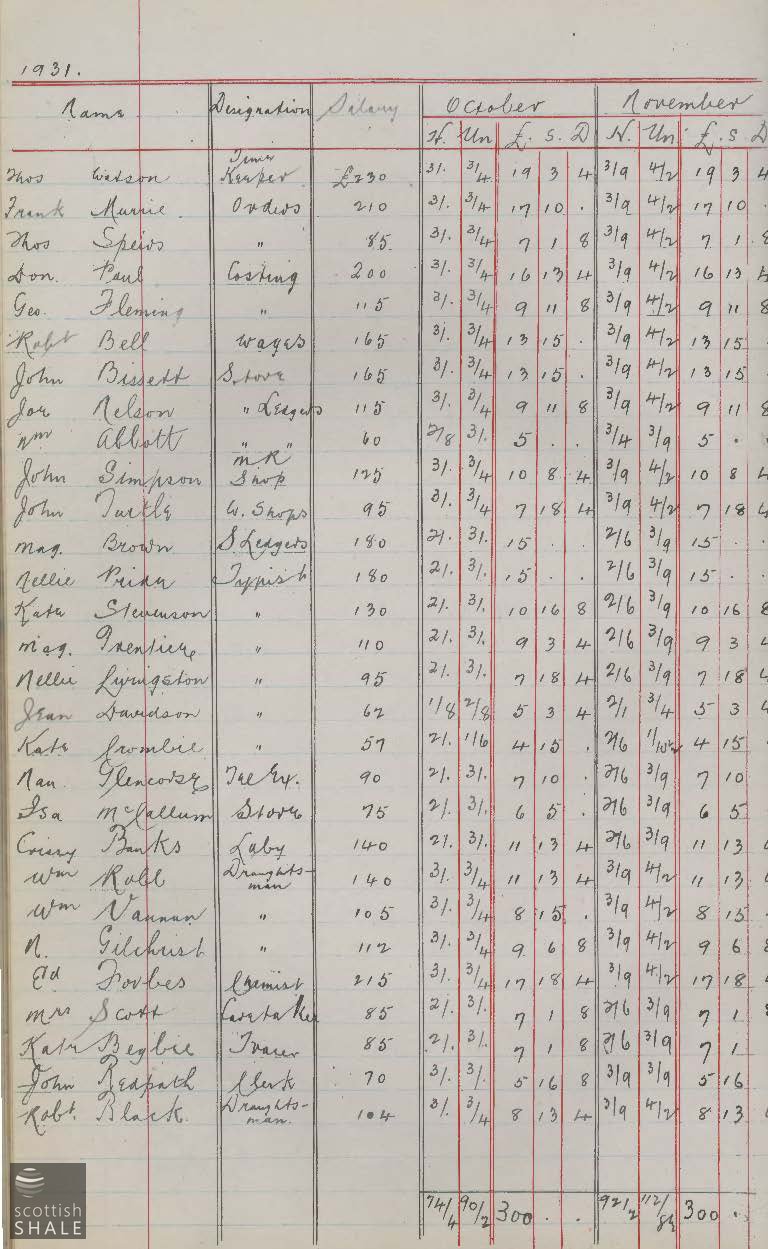 1931.
Name Designation Salary October November
H. Un £. S. D H. Un £. S D
Thos Watson Time Keeper £230 3/. 3/4 19 3 4 3/9 4/2 19 3 4
Frank Murrie Orders 210 3/. 3/4 17 10 . 3/9 4/2 17 10 .
Thos Speirs " 85 3/. 3/4 7 1 8 3/9 4/2 7 1 8
Don. Paul Costing 200 3/. 3/4 16 13 4 3/9 4/2 16 13 4
Geo. Fleming " 115 3/. 3/4 9 11 8 3/9 4/2 9 11 8
Robt Bell Wages 165 3/. 3/4 13 15 . 3/9 4/2 13 15 .
John Bissett Store 165 3/. 3/4 13 15 . 3/9 4/2 13 15 .
Joe Nelson " Ledgers 115 3/. 3/4 9 11 8 3/9 4/2 9 11 8
Wm Abbott " " 60 2/8 3/. 5 . . 3/4 3/9 5 . .
John Simpson MR Shop 125 3/. 3/4 10 8 4 3/9 4/2 10 8 4
John Turtle W. Shops 95 3/. 3/4 7 18 4 3/9 4/2 7 18 4
Mag. Brown S Ledgers 180 2/. 3/. 15 . . 2/6 3/9 15 . .
Nellie Pride Typist 180 2/. 3/. 15 . . 2/6 3/9 15 . .
Kate Stevenson " 130 2/. 3/. 10 16 8 2/6 3/9 10 16 8
Mag. Prentice " 110 2/. 3/. 9 3 4 2/6 3/9 9 3 4
Nellie Livingston " 95 2/. 3/. 7 18 4 2/6 3/9 7 18 4
Jean Davidson " 62 1/8 2/8 5 3 4 2/1 3/4 5 3 4
Kate Crombie " 57 2/. 1/6 4 15 . 2/6 1/10½ 4 15
Nan Glencorse Tel Ex. 90 2/. 3/. 7 10 . 2/6 3/9 7 10
Isa McCallum Store 75 2/. 3/. 6 5 . 2/6 3/9 6 5
Crissy Banks Laby 140 2/. 3/. 11 13 4 2/6 3/9 11 13 4
Wm Robb Draughts-man 140 3/. 3/4 11 13 4 3/9 4/2 11 13 4
Wm Vannan " 105 3/. 3/4 8 15 . 3/9 4/2 8 15
N. Gilchrist " 112 3/. 3/4 9 6 8 3/9 4/2 9 6 8
Ed Forbes Chemist 215 3/. 3/4 17 18 4 3/9 4/2 17 18 4
Mrs Scott Caretaker 85 2/. 3/. 7 1 8 2/6 3/9 7 1 8
Kate Begbie Tracer 85 2/. 3/. 7 1 8 2/6 3/9 7 1
John Redpath Clerk 70 3/. 3/. 5 16 8 3/9 3/9 5 16
Robt. Black Draughts-man. 104 3/. 3/4 8 13 4 3/9 4/2 8 13 4
74/4 90/2 300 . . 92/2 112/8½ 300 .
scottish
SHALE